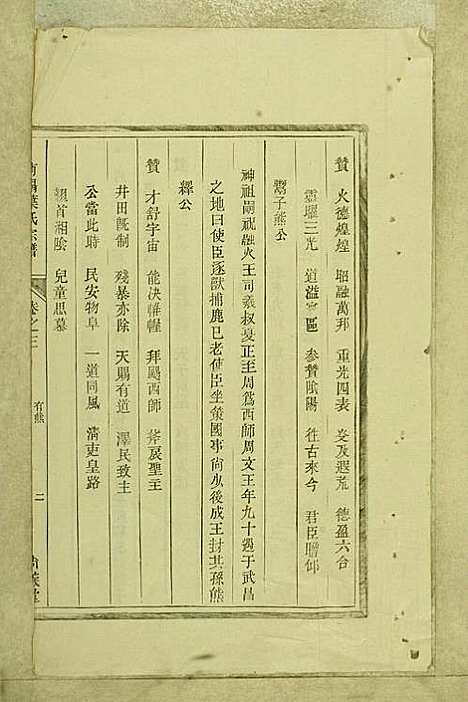 贊 火德煌煌 昭融萬邦 重光四表 爰及遐荒 德盈六合
靈曜三光 道溢寰區 參贊陰陽 往古來今 君臣瞻仰
鬻子熊公
神祖嗣祝融火王司羲叔夏正至周爲西師周文王年九十遇于武昌
之地曰使臣逐獸捕鹿已老使臣坐策國事尙少後成王封其孫熊
繹公
贊 才舒宇宙 能决帷幄 拜颺西師 黼扆聖主
井田旣制 殘暴亦除 天賜有道 澤民致主
公當此時 民安物阜 一道同風 淸吏皇路
首相陰 兒童思慕
南陽葉氏宗譜 卷之三 有熊 二